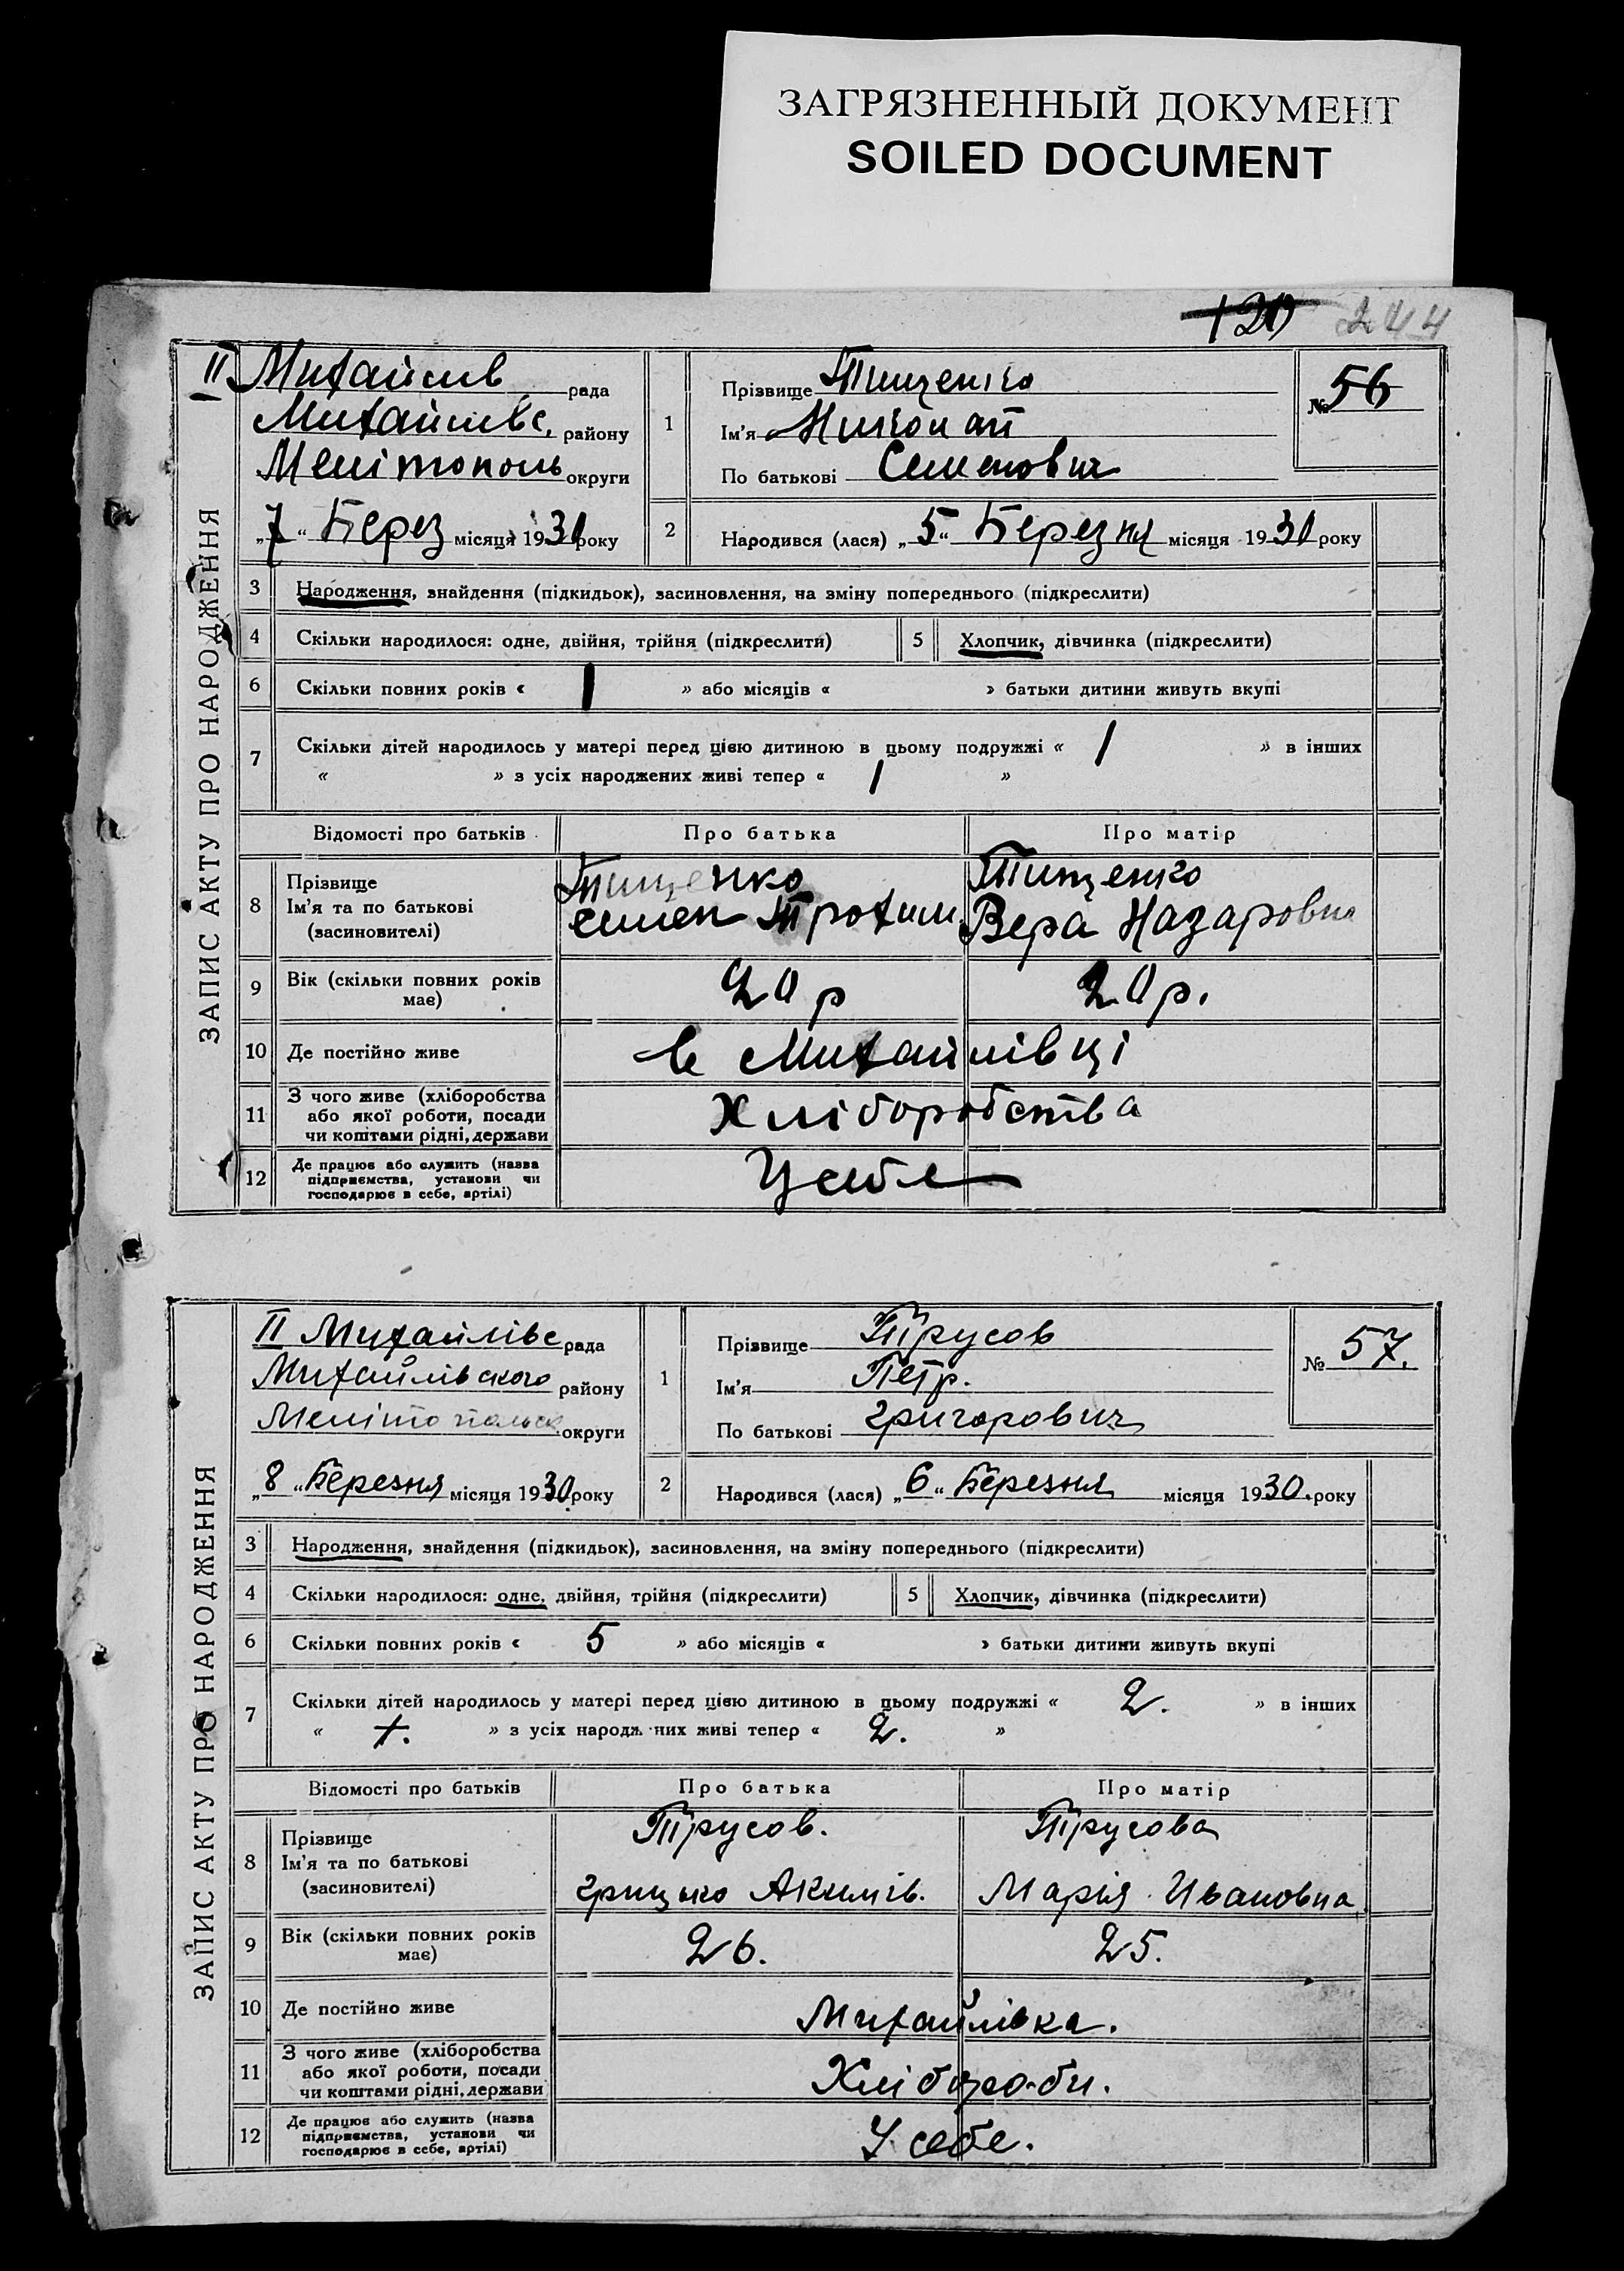 ЗАГРЯЗНЕННЫЙ ДОКУМЕНТ
SOILED DOCUMENT
120 244
ЗАПИС АКТУ ПРО НАРОДЖЕННЯ
II Михайлив рада
Михайливс. району
Мелітополь округи
„7“ Берез місяця 1930 року
1 Прізвище Тищенко
Ім’я Николай
По батькові Семенович
№ 56
2 Народився (лася) „5“ Березня місяця 1930 року
3 Народження, знайдення (підкидьок), засиновлення, на зміну попереднього (підкреслити)
4 Скільки народилося: одне, двійня, трійня (підкреслити) 5 Хлопчик, дівчинка (підкреслити)
6 Скільки повних років « 1 » або місяців « » батьки дитини живуть вкупі
7 Скільки дітей народилось у матері перед цією дитиною в цьому подружжі « 1 » в інших
« » з усіх народжених живі тепер « 1 »
Відомості про батьків Про батька Про матір
8 Прізвище Тищенко Тищенко
Ім’я та по батькові Семен Трохим. Вера Назаровна
(засиновителі)
9 Вік (скільки повних років має) 20 р 20 р.
10 Де постійно живе в Михайлівці
11 З чого живе (хліборобства або якої роботи, посади чи коштами рідні, держави Хліборобства
12 Де працює або служить (назва підприємства, установи чи господарює в себе, артілі) Усебе
ЗАПИС АКТУ ПРО НАРОДЖЕННЯ
II Михайлівс рада
Михайлівского району
Мелітопольск округи
„8“ Березня місяця 1930 року
1 Прізвище Трусов
Ім’я Петр.
По батькові Григорович
№ 57.
2 Народився (лася) „6“ Березня місяця 1930. року
3 Народження, знайдення (підкидьок), засиновлення, на зміну попереднього (підкреслити)
4 Скільки народилося: одне, двійня, трійня (підкреслити) 5 Хлопчик, дівчинка (підкреслити)
6 Скільки повних років « 5 » або місяців « » батьки дитини живуть вкупі
7 Скільки дітей народилось у матері перед цією дитиною в цьому подружжі « 2. » в інших
« +. » з усіх народж них живі тепер « 2. »
Відомості про батьків Про батька Про матір
8 Прізвище Трусов. Трусова
Ім’я та по батькові Грицько Акимів. Марія Ивановна
(засиновителі)
9 Вік (скільки повних років має) 26. 25.
10 Де постійно живе Михайлівка.
11 З чого живе (хліборобства або якої роботи, посади чи коштами рідні, держави Хлібороби.
12 Де працює або служить (назва підприємства, установи чи господарює в себе, артілі) У себе.